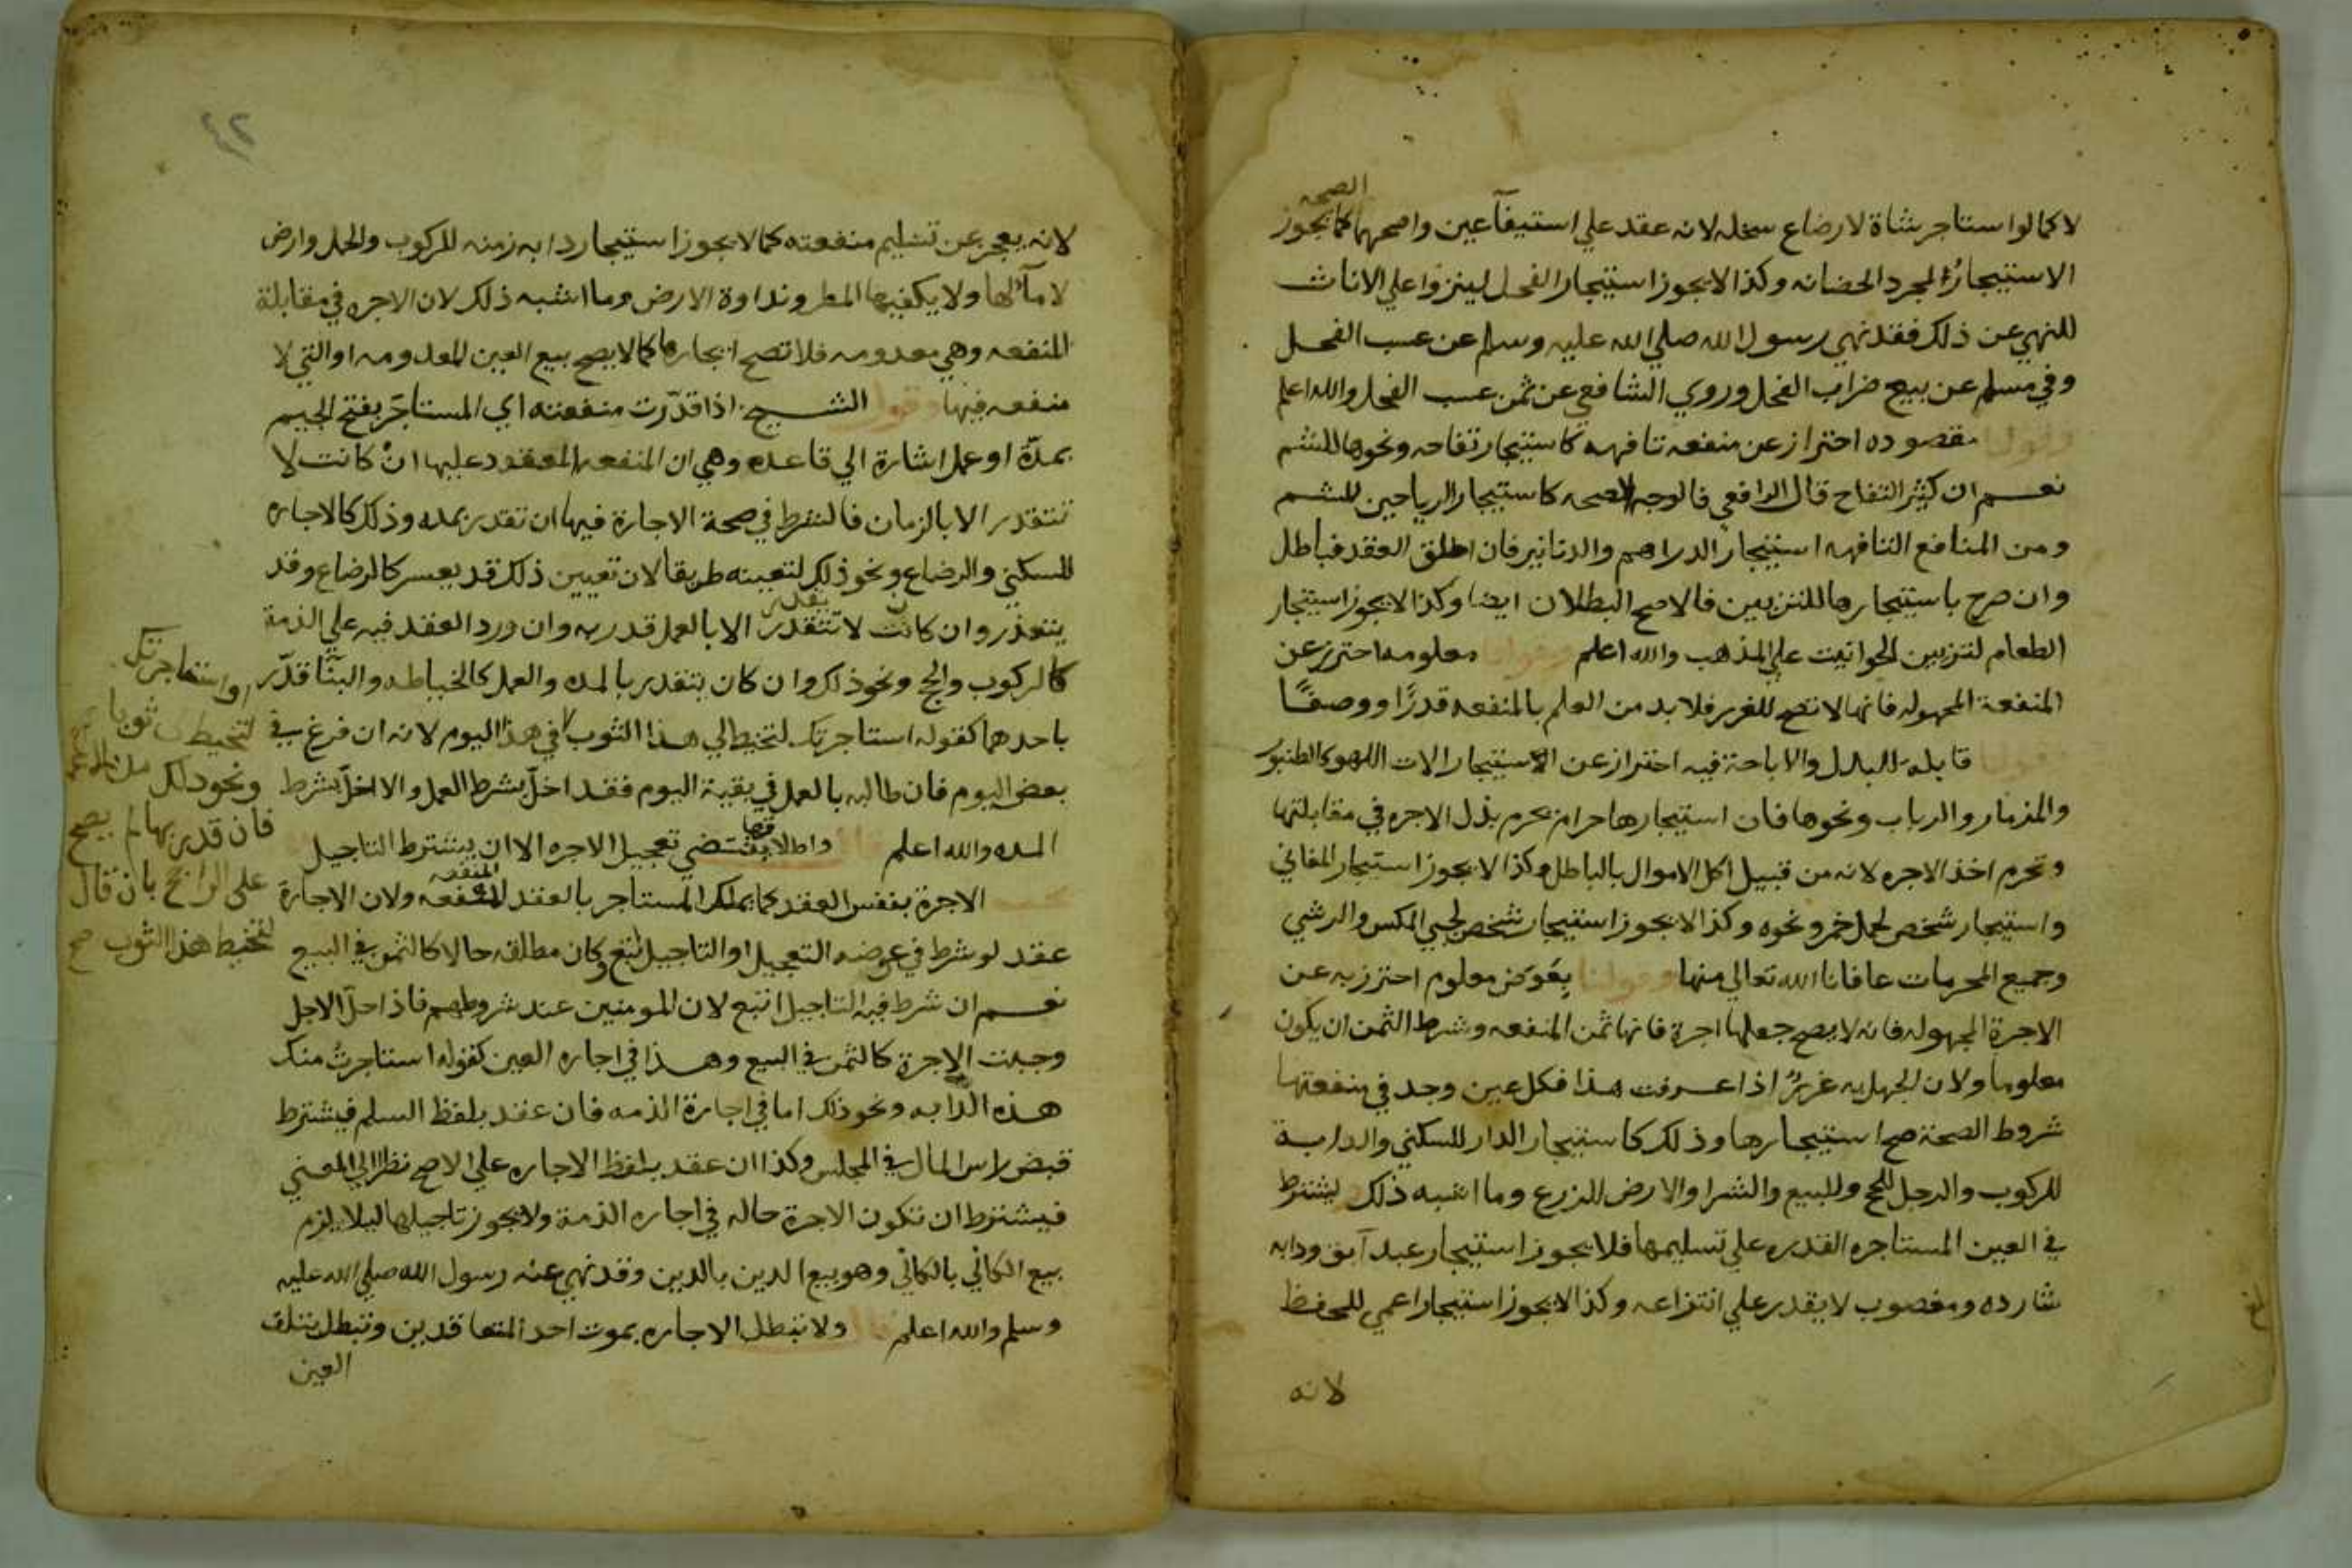 الصحه
لا كما لو استاجر شاة لارضاع سخله لانه عقد علي استيفآ عين واصحهما كما يجوز
الاستيجار لمجرد الحضانه وكذا لا يجوز استيجار الفحل لينزوا علي الاناث
للنهي عن ذلك فقد نهي رسول الله صلي الله عليه وسلم عن عسب الفحل
وفي مسلم عن بيع ضراب الفحل وروي الشافعي عن ثمن عسب الفحل والله اعلم
وقولنا مقصوده احتراز عن منفعه تافهه كاستيجار تفاحه ونحوها للشم
نعم ان كثر التفاح قال الرافعي فالوجه الصحه كاستيجار الرياحين للشم
ومن المنافع التافهه استيجار الدراهم والدنانير فان اطلق العقد فباطل
وان صرح باستيجارها للتزيين فالاصح البطلان ايضا وكذا لا يجوز استيجار
الطعام لتزيين الحوانيت علي المذهب والله اعلم وقولنا معلومه احترز عن
المنفعة المجهوله فانها لا تصح للغرر فلا بد من العلم بالمنفعه قدرًا ووصفًا
وقولنا قابله للبدل والاباحة فيه احتراز عن استيجار الات اللهو كالطنبور
والمزمار والرباب ونحوها فان استيجارها حرام يحرم بذل الاجره في مقابلتها
وتحرم اخذ الاجره لانه من قبيل اكل الاموال بالباطل وكذا لا يجوز استيجار المغاني
واستيجار شخص لحمل خمر ونحوه وكذا لا يجوز استيجار شخص لجبي المكس والرشي
وجميع المحرمات عافانا الله تعالي منها وقولنا بعوض معلوم احترز به عن
الاجرة المجهوله فانه لا يصح جعلها اجرة فانها ثمن المنفعه وشرط الثمن ان يكون
معلوما ولان الجهل به غررٌ اذا عرفت هذا فكل عين وجد في منفعتها
شروط الصحة صح استيجارها وذلك كاستيجار الدار للسكني والدابة
للركوب والرجل للحج وللبيع والشرا والارض للزرع وما اشبه ذلك يشترط
في العين المستاجره القدره علي تسليمها فلا يجوز استيجار عبد آبق ودابه
شارده ومغصوب لا يقدر علي انتزاعه وكذا لا يجوز استيجار اعمي للحفظ
لانه
٤٢
لانه يعجز عن تسليم منفعته كما لا يجوز استيجار دابه زمنه للركوب والحمل وارض
لا مآ لها ولا يكفيها المطر ونداوة الارض وما اشبه ذلك لان الاجره في مقابلة
المنفعه وهي معدومه فلا تصح اجارها كما لا يصح بيع العين المعدومه او التي لا
منفعه فيها وقول الشيخ اذا قدّرت منفعته اي المستاجَر بفتح الجيم
بمدّة او عمل اشارة الي قاعده وهي ان المنفعه المعقود عليها انْ كانت لا
تتقدر الا بالزمان فالشرط في صحة الاجارة فيها ان تقدر بمده وذلك كالاجاره
للسكني والرضاع ونحو ذلك لتعينه طريقا لان تعيين ذلك قد يعسر كالرضاع وقد
يتعذر وان كانت لا تتقدر الا بالعمل قدر به وان ورد العقد فيه علي الذمة
كالركوب والحج ونحو ذلك وان كان يتقدر بالمده والعمل كالخياطه والبنّا قدّر
باحدهما كقوله استاجرتك لتخيط لي هذا الثوب لا في هذا اليوم لانه ان فرغ في
بعض اليوم فان طالبه بالعمل في بقية اليوم فقد اخلّ بشرط العمل والا اخلّ بشرط
المده والله اعلم قال واطلاقها يقتضي تعجيل الاجره الا ان يشترط التاجيل
الاجرة بنفس العقد كما يملك المستاجر بالعقد المنفعه ولان الاجارة
عقد لو شرط في عوضه التعجيل او التاجيل اتبع وكان مطلقه حالا كالثمن في البيع
نعم ان شرط فيه التاجيل اتبع لان المومنين عند شروطهم فاذا حلّ الاجل
وجبت الاجرة كالثمن في البيع وهذا في اجاره العين كقوله استاجرتُ منك
هذه الدابه ونحو ذلك اما في اجارة الذمه فان عقد بلفظ السلم فيشترط
قبض راس المال في المجلس وكذا ان عقد بلفظ الاجاره علي الاصح نظرا الي المعني
فيشترط ان تكون الاجرة حاله في اجاره الذمة ولا يجوز تاجيلها ليلا يلزم
بيع الكالي بالكالي وهو بيع الدين بالدين وقد نهي عنه رسول الله صلي الله عليه
وسلم والله اعلم قال ولا تبطل الاجاره بموت احد المتعاقدين وتبطل بتلف
العين
او استاجرتك
لتخيط ثوبا
ونحو ذلك
فان قدر بهما لم يصح
على الراجح بان قال
لتخيط هذا الثوب صح